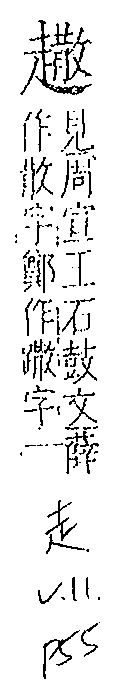 見周宣王石鼓文薛
作字鄭作字一
走
V.11.
P55